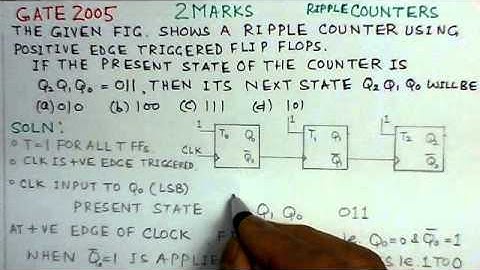 GATE 2005 2 MARKS RIPPLE COUNTERS
THE GIVEN FIG. SHOWS A RIPPLE COUNTER USING
POSITIVE EDGE TRIGGERED FLIP FLOPS.
IF THE PRESENT STATE OF THE COUNTER IS
Q₂ Q₁ Q₀ = 011, THEN ITS NEXT STATE Q₂ Q₁ Q₀ WILL BE
(a) 010 (b) 100 (c) 111 (d) 101
SOLN:
1 1 1
T₀ Q₀ T₁ Q₁ T₂ Q₂
T=1 FOR ALL T FFs.
CLK Q̅₀ Q̅₁ Q̅₂
CLK IS +VE EDGE TRIGGERED
CLK INPUT TO Q₀ (LSB)
PRESENT STATE Q₁ Q₀ 011
AT +VE EDGE OF CLOCK F i.e. Q₀=0 & Q̅₀=1
WHEN Q̅₀=1 IS APPLIE 1 TO 0